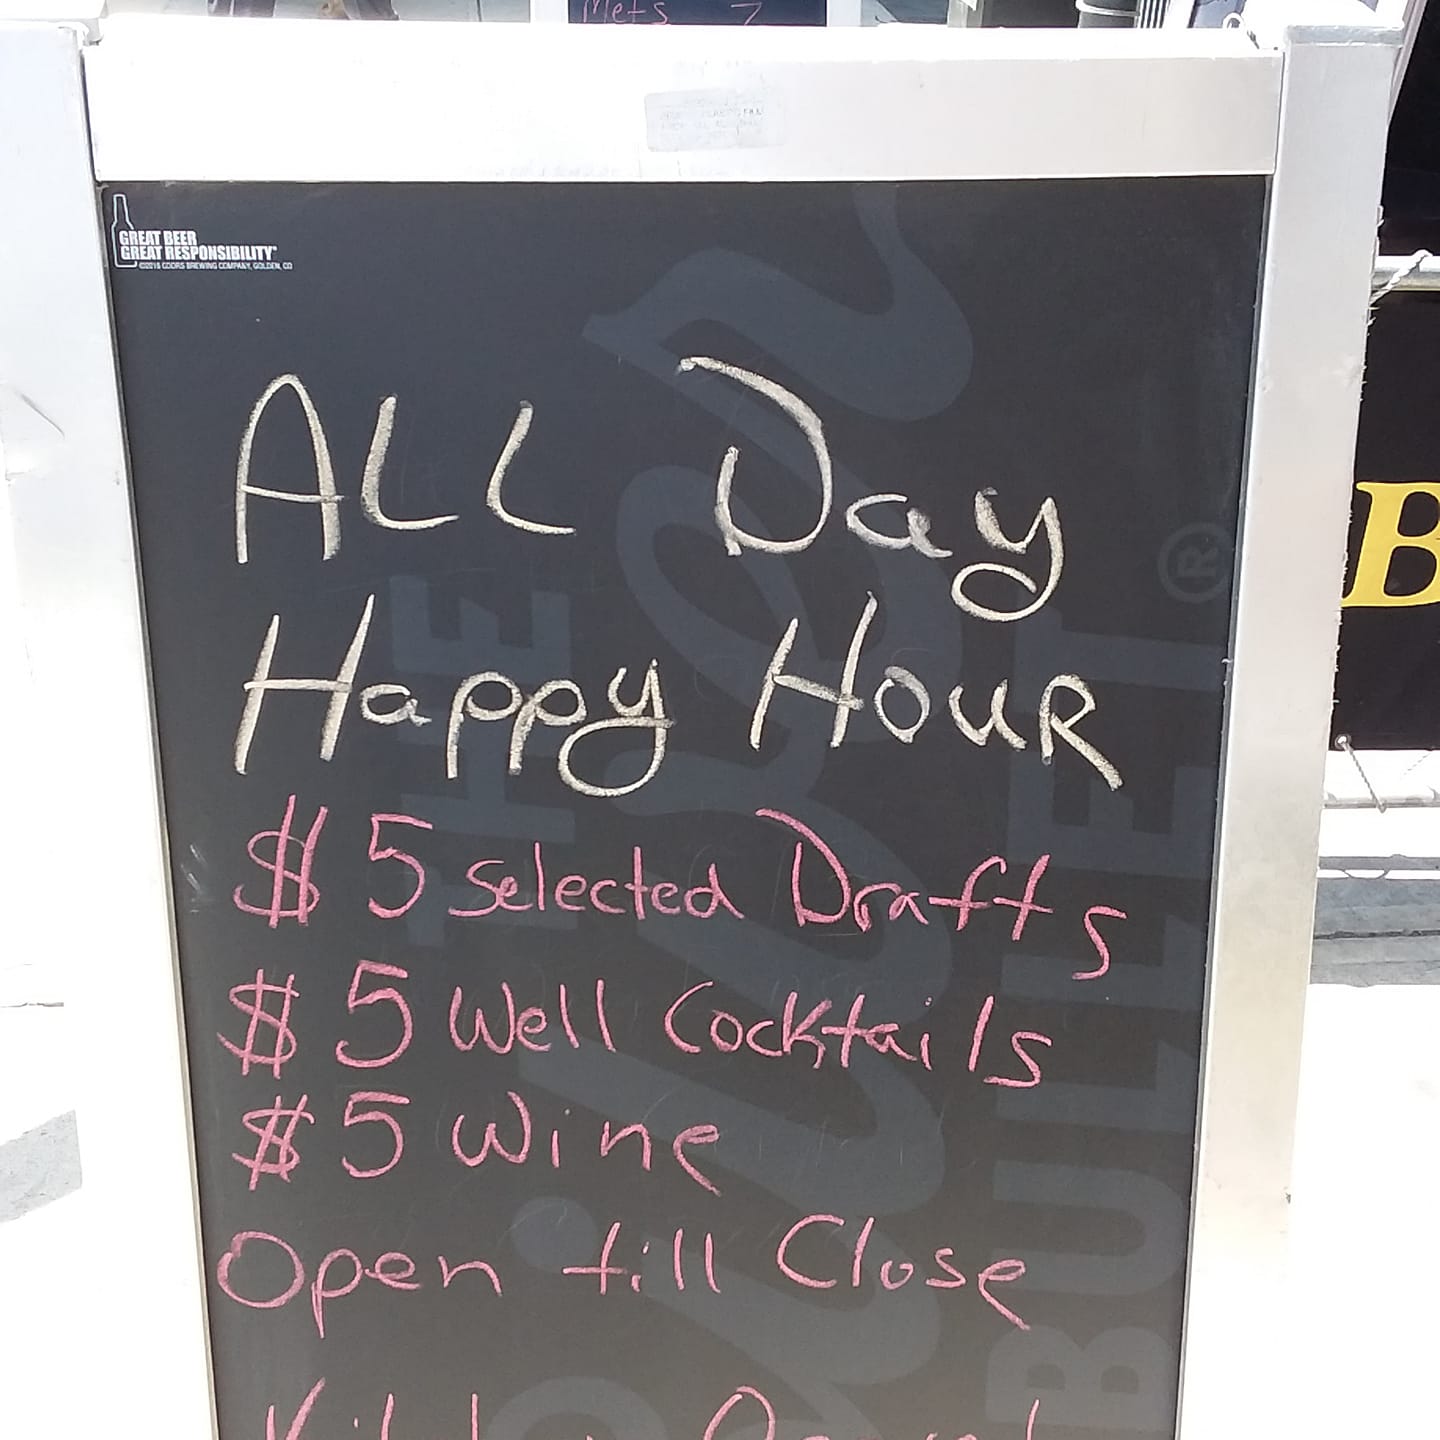 Mets 7
GREAT BEER
GREAT RESPONSIBILITY
©2016 COORS BREWING COMPANY, GOLDEN, CO
ALL Day
Happy HouR
$5 Selected Drafts
$5 Well Cocktails
$5 Wine
Open till Close
THE
Silver
BULLET®
B